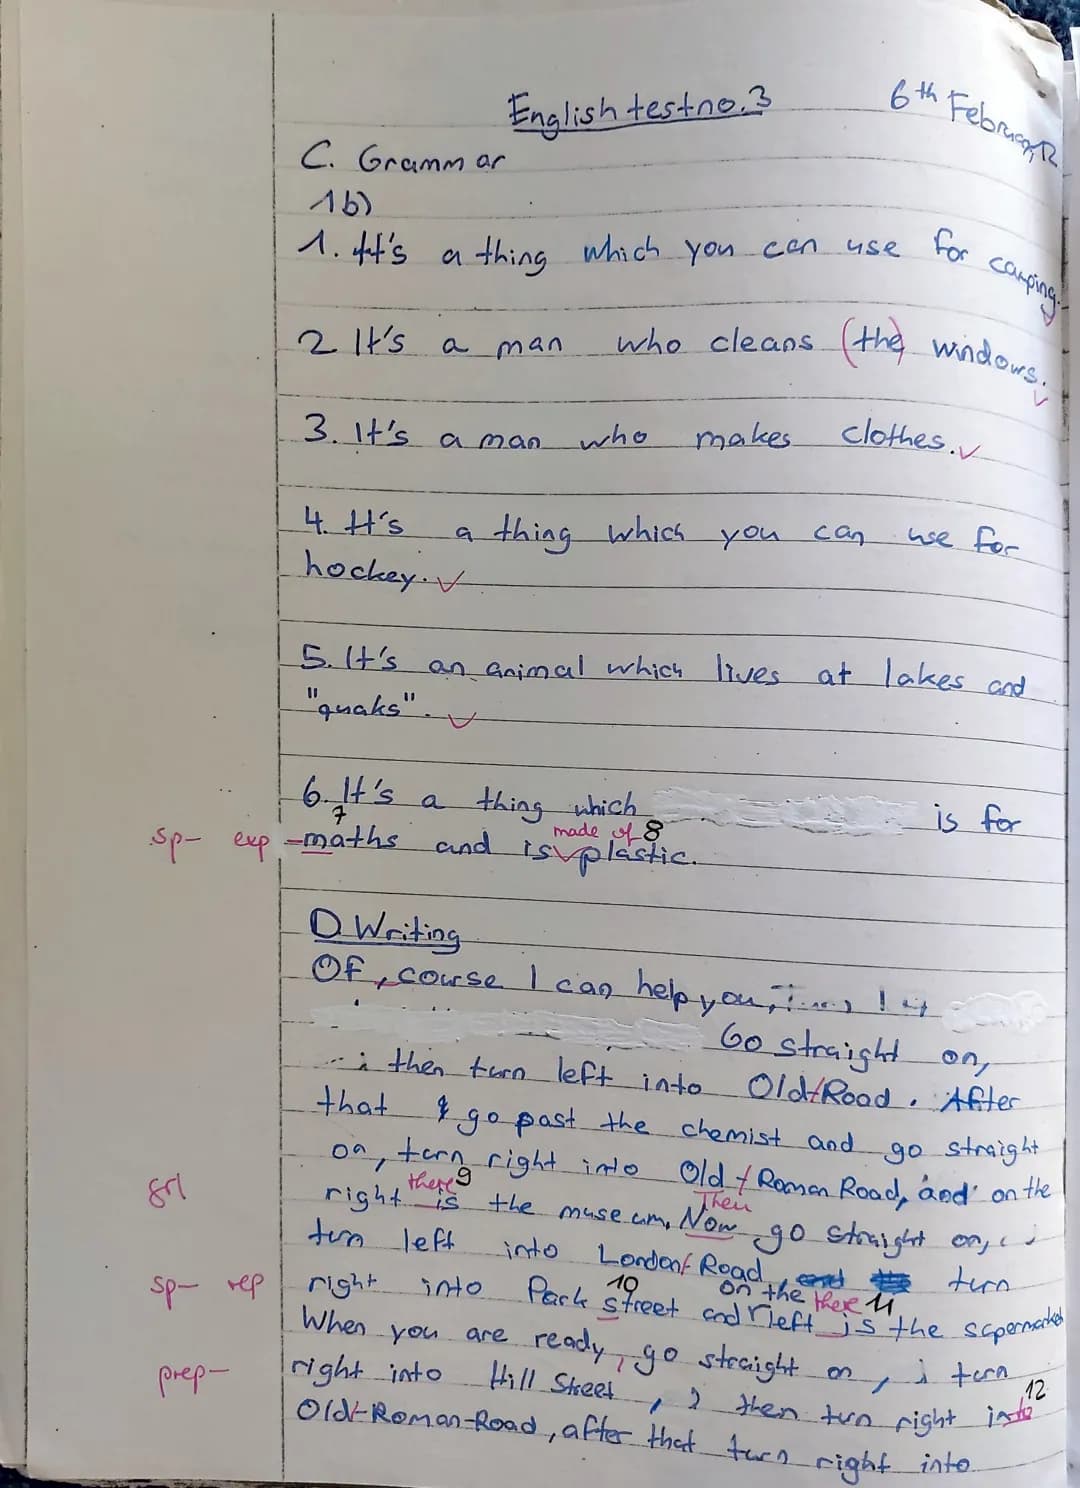 English test no. 3
6th
C. Grammar
1b)
1. It's a thing which you can use for camping.
2 It's a man who cleans (the) windows.
3. It's a man who makes clothes.
4. It's a thing which you can use for
hockey.
5. It's an animal which lives at lakes and
"quaks".
6. It's a thing which is for
7
made of 8
sp- exp -maths and is plastic.
D. Writing
Of course I can help you,
Go straight on,
then turn left into Old Road. After
that go past the chemist and go straight
on, turn right into Old Roman Road, and on the
there 9
right is the museum, Now go straight on,
Then
turn left into London Road, turn
10 on the there 11
sp- rep right into Park street and left is the supermarket
When you are ready, go straight on, turn
prep- right into Hill Street, then turn right into
12
Old-Roman-Road, after that turn right into